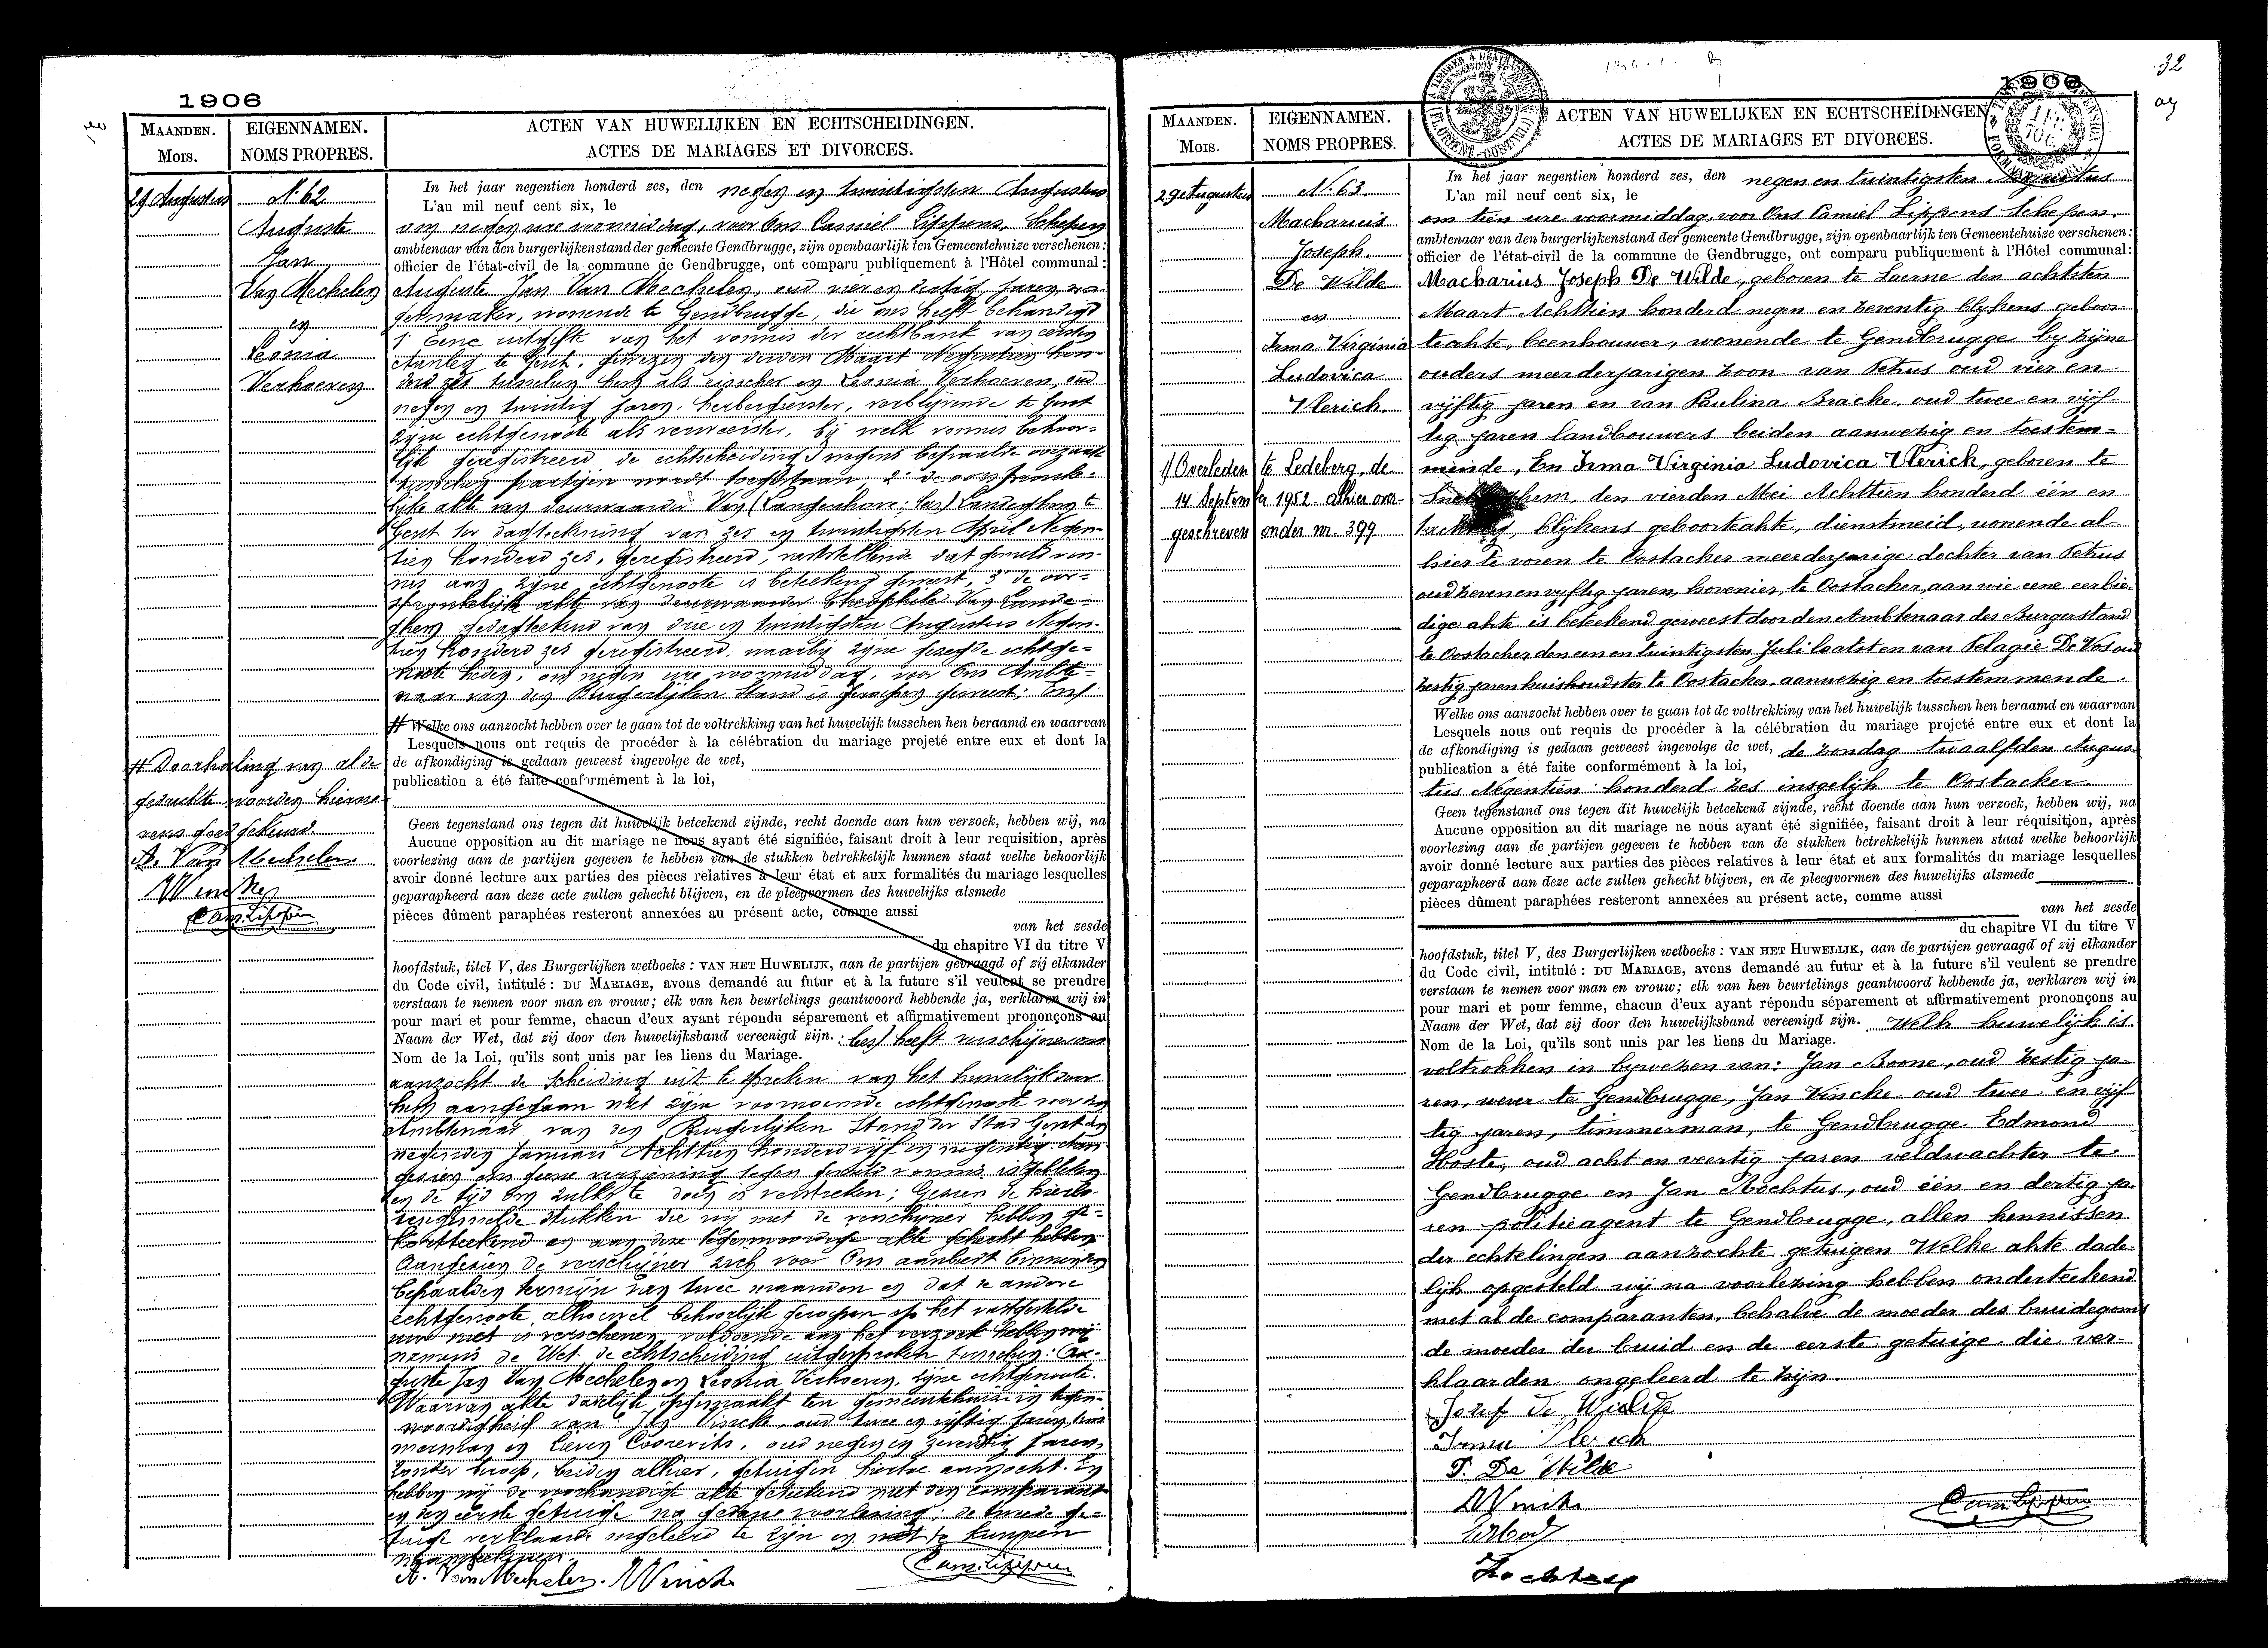 1906
MAANDEN.
MOIS.
EIGENNAMEN.
NOMS PROPRES.
ACTEN VAN HUWELIJKEN EN ECHTSCHEIDINGEN.
ACTES DE MARIAGES ET DIVORCES.
29 Augustus
N. 62
Auguste
Jan
Van Mechelen
en
Leonia
Verhoeven
In het jaar negentien honderd zes, den negen en twintigsten Augustus
L'an mil neuf cent six, le
om negen ure voormiddag, voor Ons Camiel Lippens, Schepen
ambtenaar van den burgerlijkenstand der gemeente Gendbrugge, zijn openbaarlijk ten Gemeentehuize verschenen:
officier de l'état-civil de la commune de Gendbrugge, ont comparu publiquement à l'Hôtel communal:
Auguste Jan Van Mechelen, oud vier en dertig jaren, wa-
genmaker, wonende te Gendbrugge, die ons heeft behandigd
1° Eene uitgifte van het vonnis der rechtbank van eersten
Aanleg te Gent, gewezen den derden Maart Negentien hon-
derd zes tusschen hem als eisscher en Leonia Verhoeven, oud
negen en twintig jaren, herbergierster, verblijvende te Gent
zijne echtgenoote als verweerster, bij welk vonnis behoor-
lijk geregistreerd de echtscheiding wegens bepaalde oorzaak
tusschen partijen wordt toegestaan 2° de oorspronke-
lijke akte van deurwaarder Van (Langenhove: les) Landeghem te
Gent ter dagteekening van zes en twintigsten April Negen-
tien honderd zes, geregistreerd, vaststellende dat gemeld von-
nis aan zijne echtgenoote is beteekend geweest, 3° de oor-
spronkelijke akte van deurwaarder Theophile Van Lande-
ghem gedagteekend van drie en twintigsten Augustus Negen-
tien honderd zes geregistreerd, waarbij zijne gezegde echtge-
noote heden, om negen ure voormiddag, voor Ons Ambte-
naar van den Burgerlijken Stand is geroepen geweest; Ons
# Welke ons aanzocht hebben over te gaan tot de voltrekking van het huwelijk tusschen hen beraamd en waarvan
Lesquels nous ont requis de procéder à la célébration du mariage projeté entre eux et dont la
de afkondiging is gedaan geweest ingevolge de wet,
publication a été faite conformément à la loi,
Geen tegenstand ons tegen dit huwelijk beteekend zijnde, recht doende aan hun verzoek, hebben wij, na
Aucune opposition au dit mariage ne nous ayant été signifiée, faisant droit à leur requisition, après
voorlezing aan de partijen gegeven te hebben van de stukken betrekkelijk hunnen staat welke behoorlijk
avoir donné lecture aux parties des pièces relatives à leur état et aux formalités du mariage lesquelles
geparapheerd aan deze acte zullen gehecht blijven, en de pleegvormen des huwelijks alsmede
pièces dûment paraphées resteront annexées au présent acte, comme aussi
van het zesde
du chapitre VI du titre V
hoofdstuk, titel V, des Burgerlijken wetboeks: VAN HET HUWELIJK, aan de partijen gevraagd of zij elkander
du Code civil, intitulé: DU MARIAGE, avons demandé au futur et à la future s'il veulent se prendre
verstaan te nemen voor man en vrouw; elk van hen beurtelings geantwoord hebbende ja, verklaren wij in
pour mari et pour femme, chacun d'eux ayant répondu séparement et affirmativement prononçons au
Naam der Wet, dat zij door den huwelijksband vereenigd zijn. : les) heeft verschijner ons
Nom de la Loi, qu'ils sont unis par les liens du Mariage.
aanzocht de scheiding uit te spreken van het huwelijk door
hem aangegaan met zijne voornoemde echtgenoote voor den
Ambtenaar van den Burgerlijken Stand der Stad Gent den
negenden Januari Achttien honderd vijf en negentig
gezien om geene voorziening tegen gemeld vonnis
en de tijd om zulks te doen is verstreken; Gezien de hierbo-
vengemelde stukken die wij met de verschijner hebben ge-
kortteekend en aan deze tegenwoordige akte gehecht hebben
Aangezien de verschijner zich voor Ons aanbiedt binnen den
bepaalden termijn van twee maanden en dat de andere
echtgenoote, alhoewel behoorlijk geroepen op het vastgestelde
uur niet is verschenen voldoende aan het verzoek hebben wij
namens de Wet de echtscheiding uitgesproken tusschen: Au-
guste Jan Van Mechelen en Leonia Verhoeven, zijne echtgenoote.
Waarvan akte dadelijk opgemaakt ten gemeentehuize in tegen-
woordigheid van: Jan Vincke, oud twee en vijftig jaren, tim-
merman en Lieven Coorevits, oud negen en zeventig jaren,
zonder beroep, beiden alhier, getuigen hiertoe aanzocht. En
hebben wij de voorhandige akte geteekend met den comparant
en den eerste getuige na gedane voorlezing; de tweede ge-
tuige verklaarde ongeleerd te zijn en niet te kunnen
naamteekenen.
A. Van Mechelen. JVincke Cam. Lippens
# Doorhaling van al de
gedrukte woorden hierne-
vens goedgekeurd.
A. Van Mechelen
JVincke
Cam. Lippens
32
1906
MAANDEN.
MOIS.
EIGENNAMEN.
NOMS PROPRES.
ACTEN VAN HUWELIJKEN EN ECHTSCHEIDINGEN
ACTES DE MARIAGES ET DIVORCES.
29 Augustus
N. 63
Macharius
Joseph
De Wilde
en
Irma Virginia
Ludovica
Vlerick.
1/ Overleden te Ledeberg, de
14 September 1952 alhier over-
geschreven onder nr. 399
In het jaar negentien honderd zes, den negen en twintigsten Augustus
L'an mil neuf cent six, le
om tien ure voormiddag, voor Ons Camiel Lippens Schepen,
ambtenaar van den burgerlijkenstand der gemeente Gendbrugge, zijn openbaarlijk ten Gemeentehuize verschenen:
officier de l'état-civil de la commune de Gendbrugge, ont comparu publiquement à l'Hôtel communal:
Macharius Joseph De Wilde, geboren te Laerne den achtsten
Maart Achttien honderd negen en zeventig blijkens geboor-
teakte, beenhouwer, wonende te Gendbrugge bij zijne
ouders meerderjarigen zoon van Petrus oud vier en
vijftig jaren en van Paulina Bracke, oud twee en vijf-
tig jaren landbouwers beiden aanwezig en toestem-
mende, En Irma Virginia Ludovica Vlerick, geboren te
den vierden Mei Achttien honderd één en
tachtig, blijkens geboorteakte, dienstmeid, wonende al-
hier te voren te Oostacker meerderjarige dochter van Petrus
oud zeven en vijftig jaren, hovenier, te Oostacker, aan wie eene eerbie-
dige akte is beteekend geweest door den Ambtenaar des Burgerstand
te Oostacker den een en twintigsten Juli laatst en van Pelagie De Vos oud
zestig jaren huishoudster te Oostacker, aanwezig en toestemmende.
Welke ons aanzocht hebben over te gaan tot de voltrekking van het huwelijk tusschen hen beraamd en waarvan
Lesquels nous ont requis de procéder à la célébration du mariage projeté entre eux et dont la
de afkondiging is gedaan geweest ingevolge de wet, de zondag twaalfden Augus-
publication a été faite conformément à la loi,
tus Negentien honderd zes insgelijk te Oostacker.
Geen tegenstand ons tegen dit huwelijk beteekend zijnde, recht doende aan hun verzoek, hebben wij, na
Aucune opposition au dit mariage ne nous ayant été signifiée, faisant droit à leur réquisition, après
voorlezing aan de partijen gegeven te hebben van de stukken betrekkelijk hunnen staat welke behoorlijk
avoir donné lecture aux parties des pièces relatives à leur état et aux formalités du mariage lesquelles
geparapheerd aan deze acte zullen gehecht blijven, en de pleegvormen des huwelijks alsmede
pièces dûment paraphées resteront annexées au présent acte, comme aussi
van het zesde
du chapitre VI du titre V
hoofdstuk, titel V, des Burgerlijken wetboeks: VAN HET HUWELIJK, aan de partijen gevraagd of zij elkander
du Code civil, intitulé: DU MARIAGE, avons demandé au futur et à la future s'il veulent se prendre
verstaan te nemen voor man en vrouw; elk van hen beurtelings geantwoord hebbende ja, verklaren wij in
pour mari et pour femme, chacun d'eux ayant répondu séparement et affirmativement prononçons au
Naam der Wet, dat zij door den huwelijksband vereenigd zijn. Welk huwelijk is
Nom de la Loi, qu'ils sont unis par les liens du Mariage.
voltrokken in bijwezen van: Jan Boone, oud zestig ja-
ren, wever te Gendbrugge, Jan Vincke oud twee en vijf-
tig jaren, timmerman, te Gendbrugge Edmond
Hoste, oud acht en veertig jaren veldwachter te
Gendbrugge en Jan Rochtus, oud één en dertig ja-
ren politieagent te Gendbrugge, allen kennissen
der echtelingen aanzochte getuigen Welke akte dade-
lijk opgesteld wij na voorlezing hebben onderteekend
met al de comparanten, behalve de moeder des bruidegoms
de moeder der bruid en de eerste getuige die ver-
klaarden ongeleerd te zijn.
Jozef De Wilde
Irma Vlerick
P. De Wilde
JVincke
Cam. Lippens